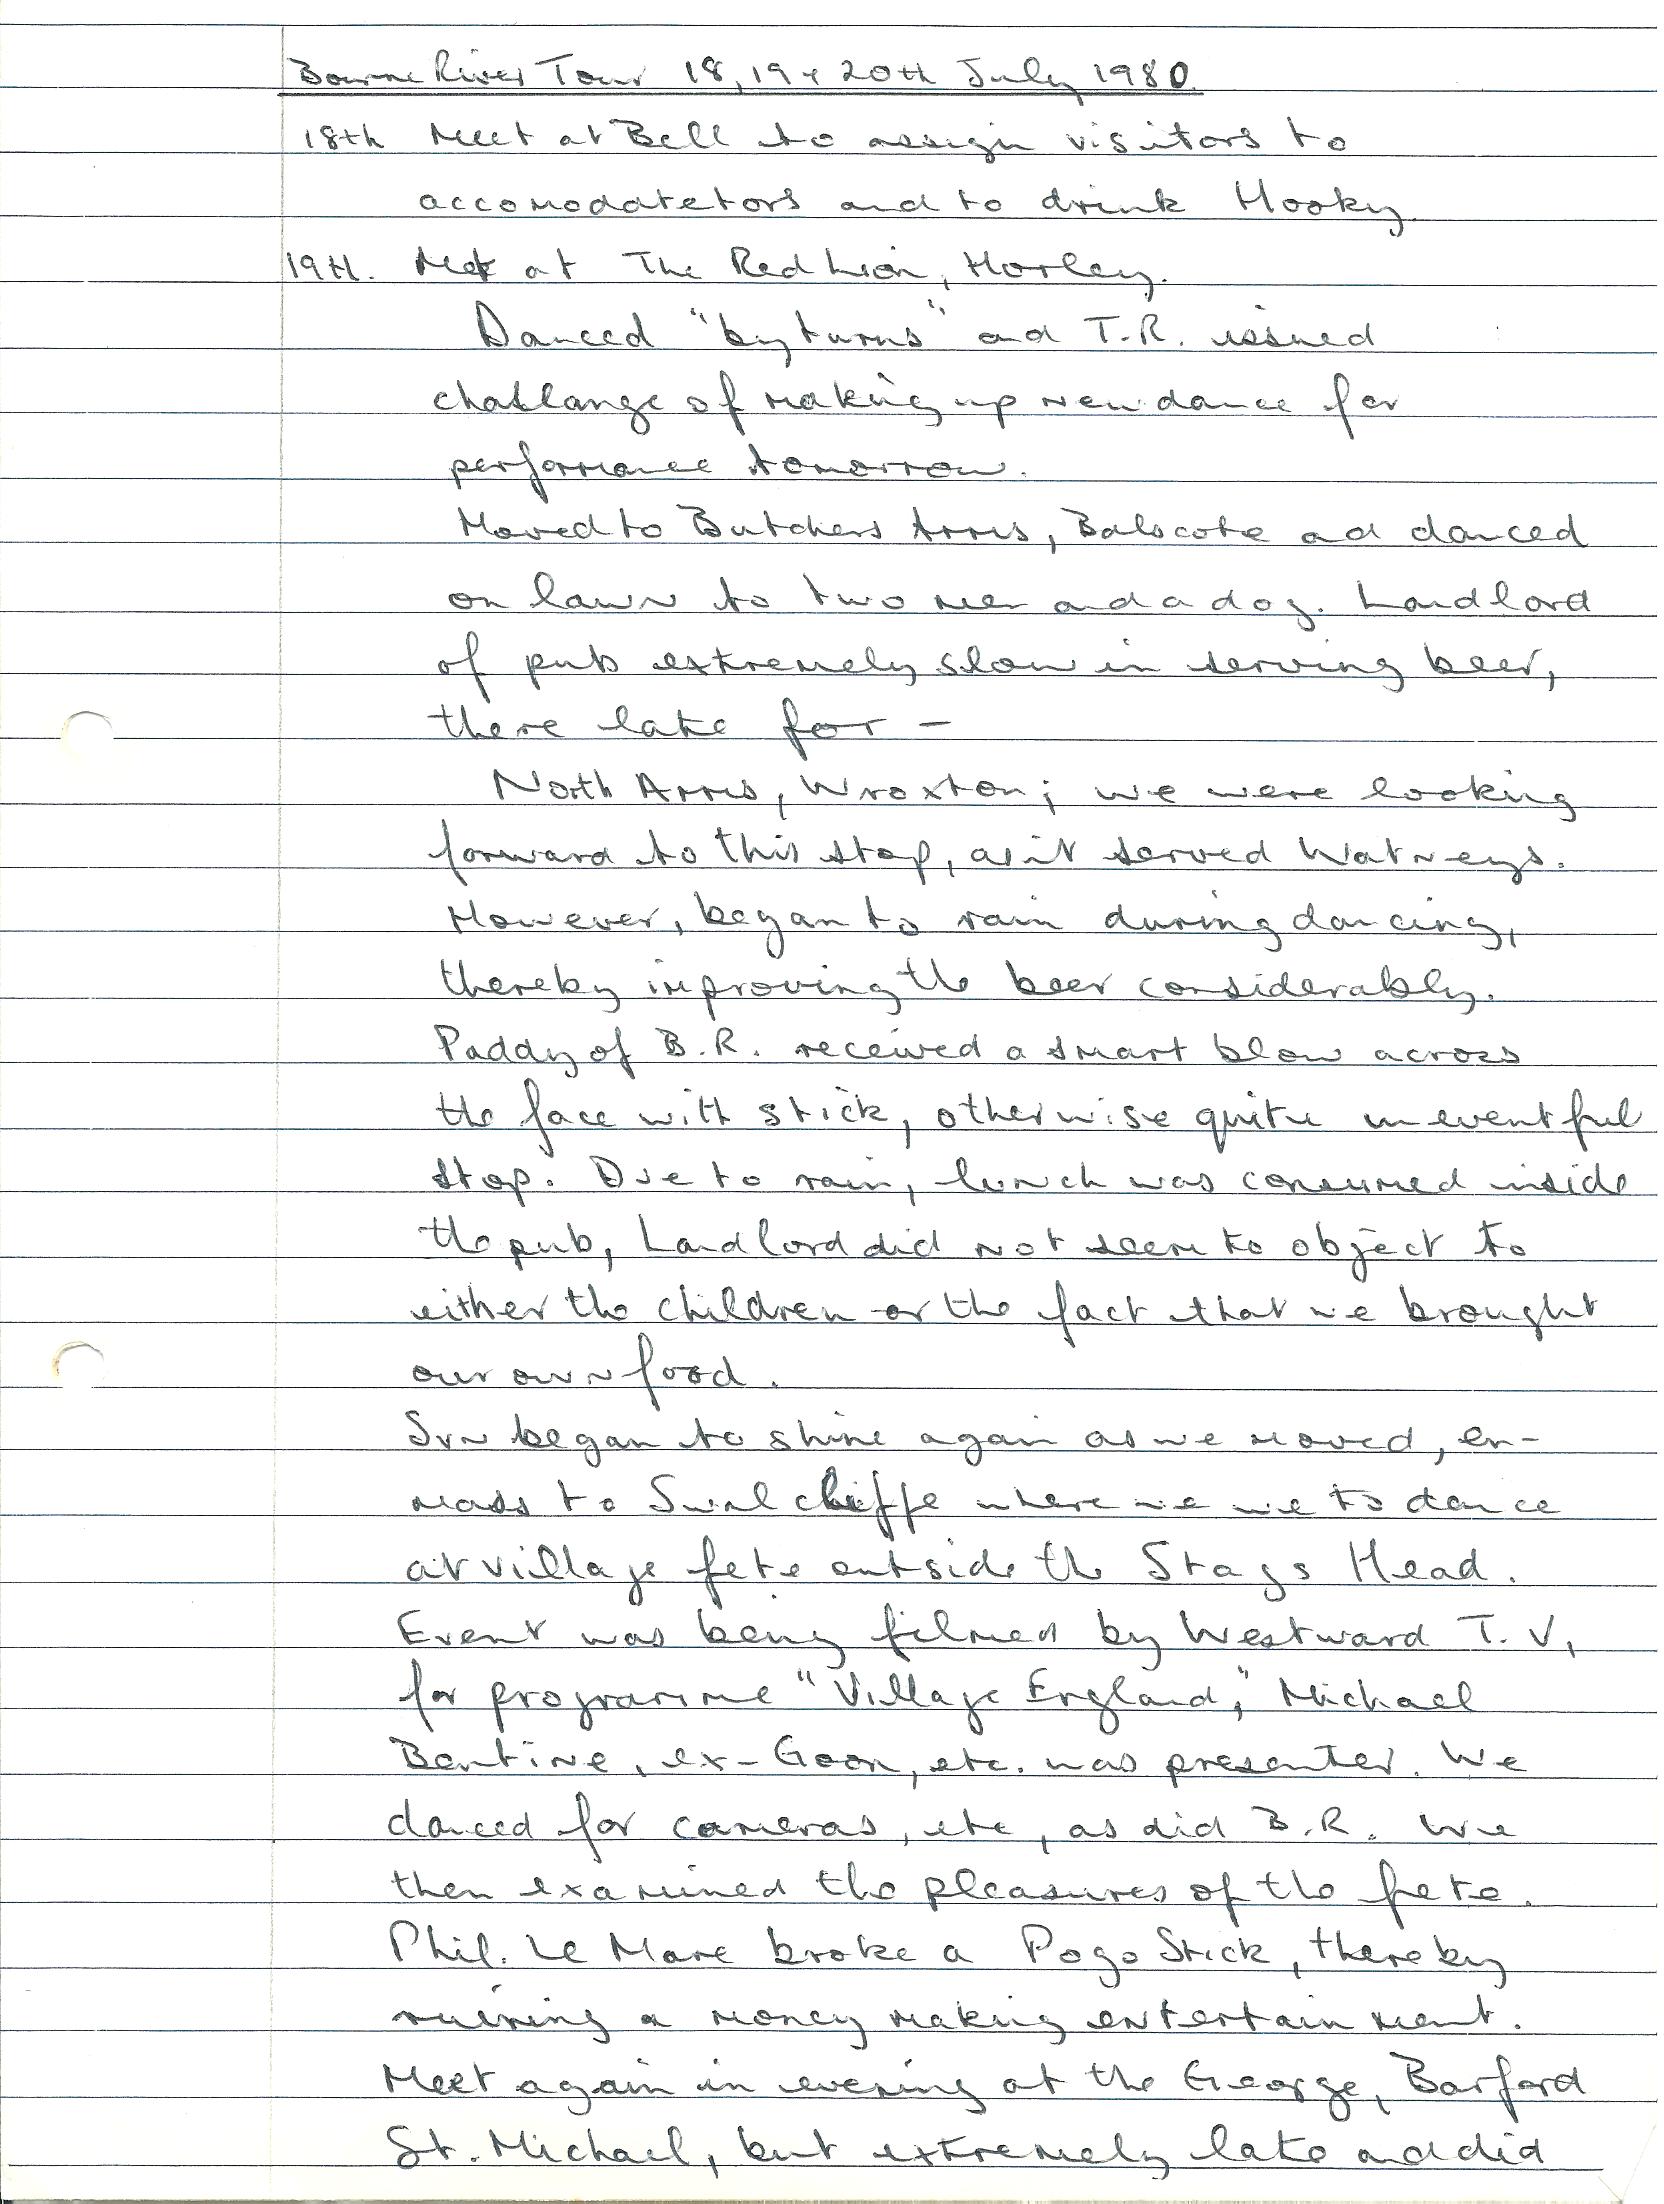 Bourne River Tour 18, 19 + 20th July 1980.
18th Meet at Bell to assign visitors to
accomodatetors and to drink Hooky.
19th. Met at The Red Lion, Horley.
Danced "by turns" and T.R. issued
challange of making up new dance for
performance tomorrow.
Moved to Butchers Arms, Balscote and danced
on lawn to two men and a dog. Landlord
of pub extremely slow in serving beer,
there late for -
North Arms, Wroxton; we were looking
forward to this stop, as it served Watneys.
However, began to rain during dancing,
thereby improving the beer considerably.
Paddy of B.R. received a smart blow across
the face with stick, otherwise quite uneventful
stop. Due to rain, lunch was consumed inside
the pub, Landlord did not seem to object to
either the children or the fact that we brought
our own food.
Sun began to shine again as we moved, en-
mass to Swalcliffe where we we to dance
at village fete outside the Stags Head.
Event was being filmed by Westward T.V,
for programme "Village England," Michael
Bentine, ex-Goon, etc. was presenter. We
danced for cameras, etc, as did B.R. We
then examined the pleasures of the fete.
Phil. Le Mare broke a Pogo Stick, thereby
ruining a money making entertainment.
Meet again in evening at the George, Barford
St. Michael, but extremely late and did